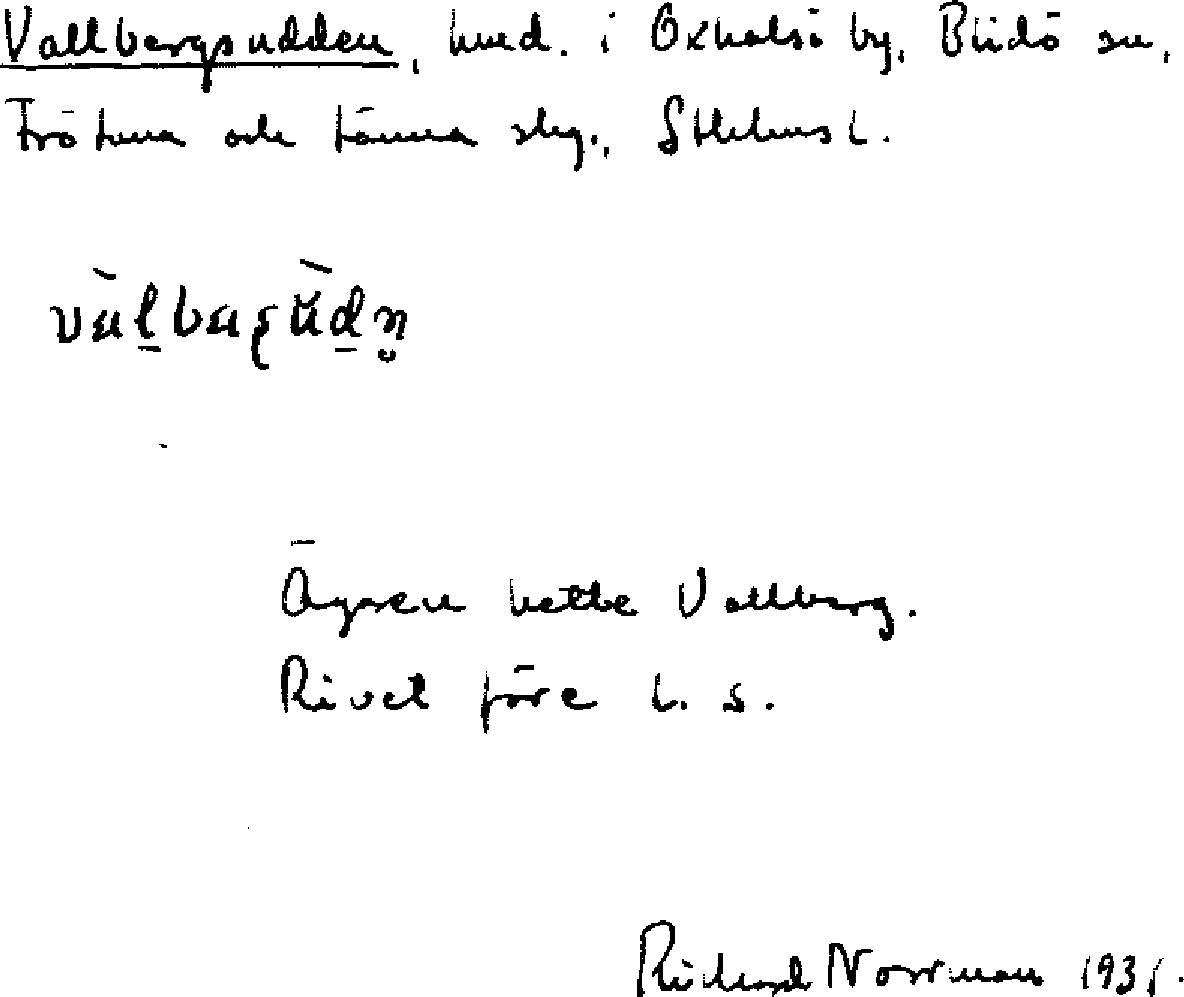 Vallbergsudden, hmd. i Oxhalsö by, Blidö sn,
Frötuna och Länna skg., Sthlms l.
Ägaren hette Vallberg.
Rivet före l. s.
Richard Norrman 1931.